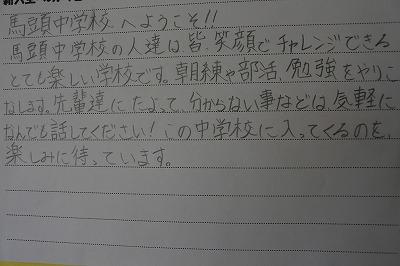 馬頭中学校へようこそ!!
馬頭中学校の人達は皆、笑顔でチャレンジできる
とても楽しい学校です。朝練や部活、勉強をやりこ
なします。先輩達にたよって、分からない事などは、気軽に
なんでも話してください!この中学校に入ってくるのを、
楽しみに待っています。